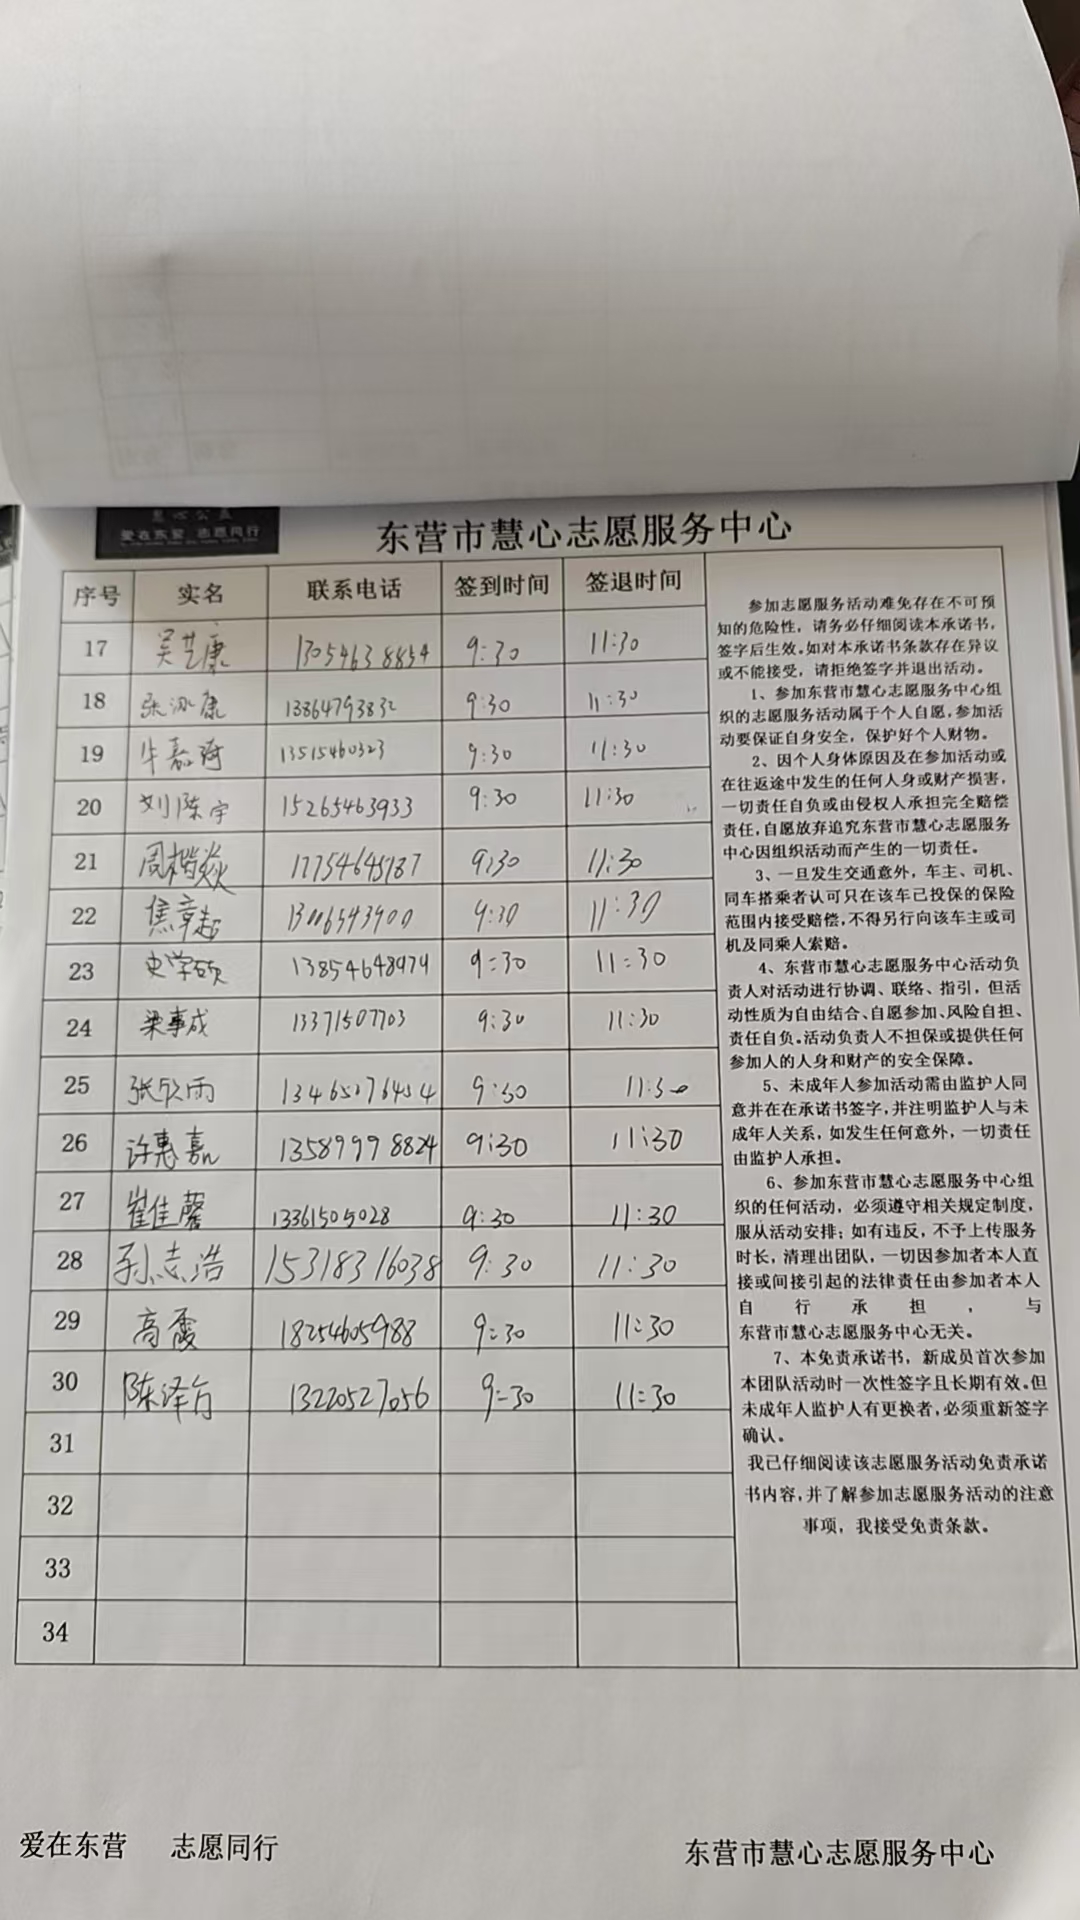 慧心公益
爱在东营 志愿同行
东营市慧心志愿服务中心
序号 实名 联系电话 签到时间 签退时间
17 吴艺康 13054638854 9:30 11:30
18 张泳康 13864793832 9:30 11:30
19 牛嘉琦 13515460323 9:30 11:30
20 刘陈宇 15265463933 9:30 11:30
21 周楷焱 17754645787 9:30 11:30
22 焦章起 13006543900 9:30 11:30
23 史学硕 13854648979 9:30 11:30
24 梁事成 13371507703 9:30 11:30
25 张欣雨 13465076454 9:30 11:30
26 许惠嘉 13589998824 9:30 11:30
27 崔佳馨 13361505028 9:30 11:30
28 孙志浩 15318316038 9:30 11:30
29 高霞 18254605988 9:30 11:30
30 陈泽方 13220527056 9:30 11:30
31
32
33
34
参加志愿服务活动难免存在不可预
知的危险性，请务必仔细阅读本承诺书，
签字后生效。如对本承诺书条款存在异议
或不能接受，请拒绝签字并退出活动。
1、参加东营市慧心志愿服务中心组
织的志愿服务活动属于个人自愿，参加活
动要保证自身安全，保护好个人财物。
2、因个人身体原因及在参加活动或
在往返途中发生的任何人身或财产损害，
一切责任自负或由侵权人承担完全赔偿
责任，自愿放弃追究东营市慧心志愿服务
中心因组织活动而产生的一切责任。
3、一旦发生交通意外，车主、司机、
同车搭乘者认可只在该车已投保的保险
范围内接受赔偿，不得另行向该车主或司
机及同乘人索赔。
4、东营市慧心志愿服务中心活动负
责人对活动进行协调、联络、指引，但活
动性质为自由结合、自愿参加、风险自担、
责任自负。活动负责人不担保或提供任何
参加人的人身和财产的安全保障。
5、未成年人参加活动需由监护人同
意并在在承诺书签字，并注明监护人与未
成年人关系，如发生任何意外，一切责任
由监护人承担。
6、参加东营市慧心志愿服务中心组
织的任何活动，必须遵守相关规定制度，
服从活动安排；如有违反，不予上传服务
时长，清理出团队，一切因参加者本人直
接或间接引起的法律责任由参加者本人
自行承担，与
东营市慧心志愿服务中心无关。
7、本免责承诺书，新成员首次参加
本团队活动时一次性签字且长期有效。但
未成年人监护人有更换者，必须重新签字
确认。
我已仔细阅读该志愿服务活动免责承诺
书内容，并了解参加志愿服务活动的注意
事项，我接受免责条款。
爱在东营 志愿同行
东营市慧心志愿服务中心